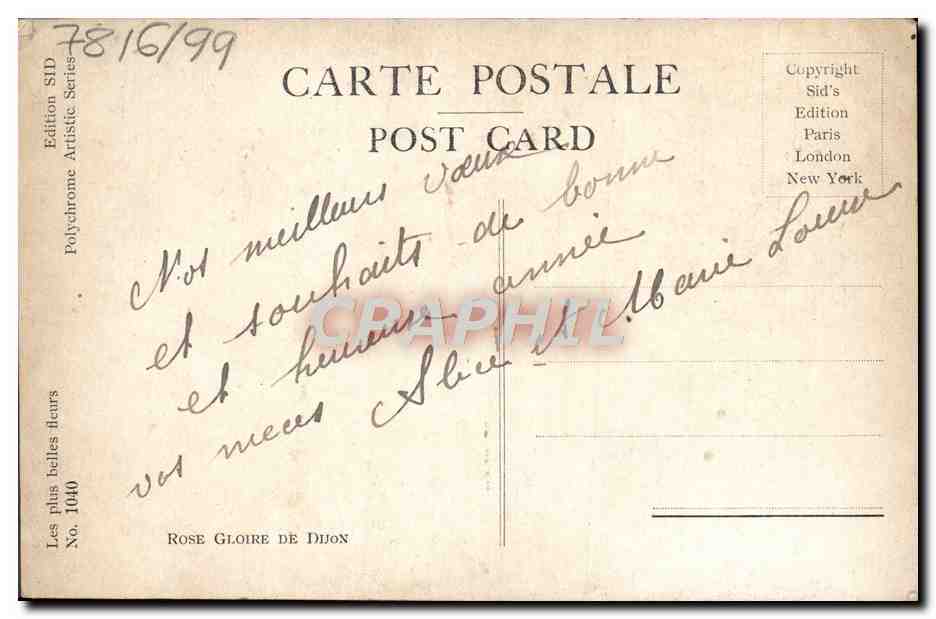 7816/99
CARTE POSTALE
POST CARD
Copyright
Sid's
Edition
Paris
London
New York
Edition SID
Polychrome Artistic Series
Les plus belles fleurs
No. 1040
Nos meilleurs vœux
et souhaits de bonne
et heureuse année
vos nièces Alice et Marie Louise
CPAPHIL
ROSE GLOIRE DE DIJON